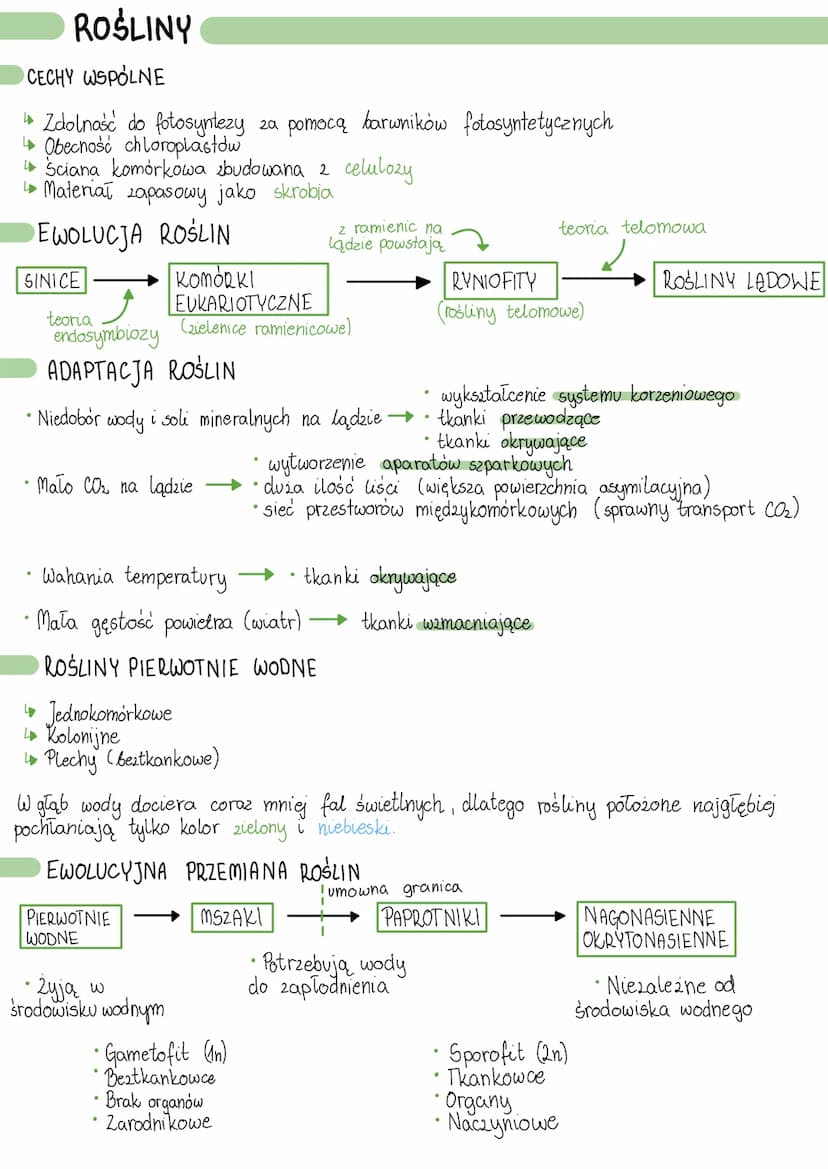 ROŚLINY
CECHY WSPÓLNE
↳ Zdolność do fotosyntezy za pomocą barwników fotosyntetycznych
↳ Obecność chloroplastów
↳ Ściana komórkowa zbudowana z celulozy
↳ Materiał zapasowy jako skrobia
EWOLUCJA ROŚLIN
z ramienic na
lądzie powstają
teoria telomowa
SINICE
KOMÓRKI
EUKARIOTYCZNE
RYNIOFITY
ROŚLINY LĄDOWE
teoria
endosymbiozy
(zielenice ramienicowe)
(rośliny telomowe)
ADAPTACJA ROŚLIN
• Niedobór wody i soli mineralnych na lądzie →
• wykształcenie systemu korzeniowego
• tkanki przewodzące
• tkanki okrywające
• Mało CO₂ na lądzie →
• wytworzenie aparatów szparkowych
• duża ilość liści (większa powierzchnia asymilacyjna)
• sieć przestworów międzykomórkowych (sprawny transport CO₂)
• Wahania temperatury → • tkanki okrywające
• Mała gęstość powietrza (wiatr) → tkanki wzmacniające
ROŚLINY PIERWOTNIE WODNE
↳ Jednokomórkowe
↳ Kolonijne
↳ Plechy (beztkankowe)
W głąb wody dociera coraz mniej fal świetlnych, dlatego rośliny położone najgłębiej
pochłaniają tylko kolor zielony i niebieski.
EWOLUCYJNA PRZEMIANA ROŚLIN
umowna granica
PIERWOTNIE
WODNE
MSZAKI
PAPROTNIKI
NAGONASIENNE
OKRYTONASIENNE
• Żyją w
środowisku wodnym
• Potrzebują wody
do zapłodnienia
• Niezależne od
środowiska wodnego
• Gametofit (1n)
• Beztkankowce
• Brak organów
• Zarodnikowe
• Sporofit (2n)
• Tkankowce
• Organy
• Naczyniowe